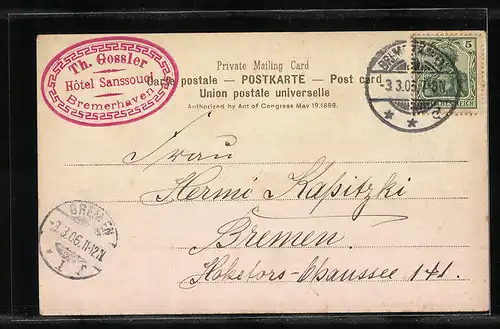 Th. Gossler
Hôtel Sanssouci
Bremerhaven
Private Mailing Card
Carte postale — POSTKARTE — Post card
Union postale universelle
Authorized by Act of Congress May 19. 1898.
5
3.3.06
Frau
Hermi Kapitzki
Bremen.
Hokefors-Chaussee 141.
BREMEN
3.3.06.11-12N